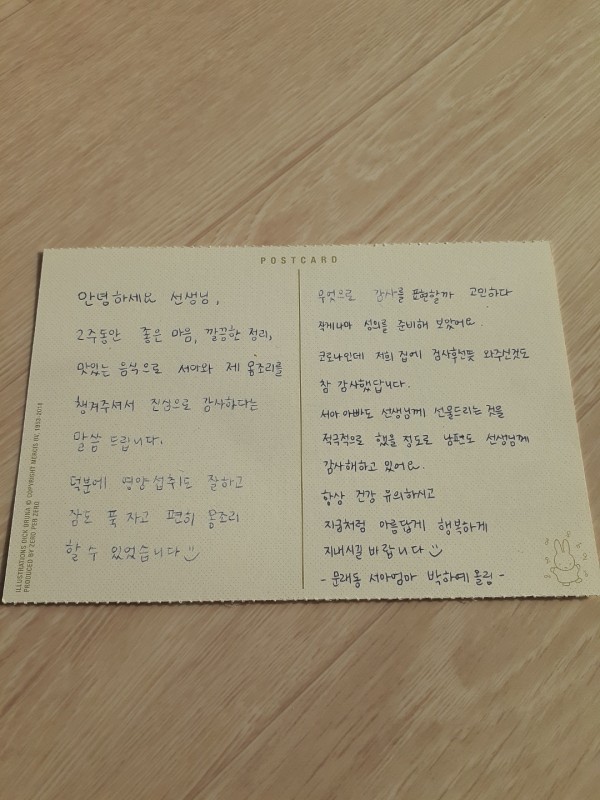 POSTCARD
안녕하세요 선생님,
2주동안 좋은 마음, 깔끔한 정리,
맛있는 음식으로 서아와 제 몸조리를
챙겨주셔서 진심으로 감사하다는
말씀 드립니다.
덕분에 영양섭취도 잘하고
잠도 푹 자고 편히 몸조리
할 수 있었습니다
무엇으로 감사를 표현할까 고민하다
작게나마 성의를 준비해 보았어요.
코로나인데 저희 집에 검사후선뜻 와주신것도
참 감사했답니다.
서아 아빠도 선생님께 선물드리는 것을
적극적으로 했을 정도로 남편도 선생님께
감사해하고 있어요.
항상 건강 유의하시고
지금처럼 아름답게 행복하게
지내시길 바랍니다
- 문래동 서아엄마 박하예 올림 -
ILLUSTRATIONS DICK BRUNA © COPYRIGHT MERCIS BV, 1953-2018
PRODUCED BY ZERO PER ZERO